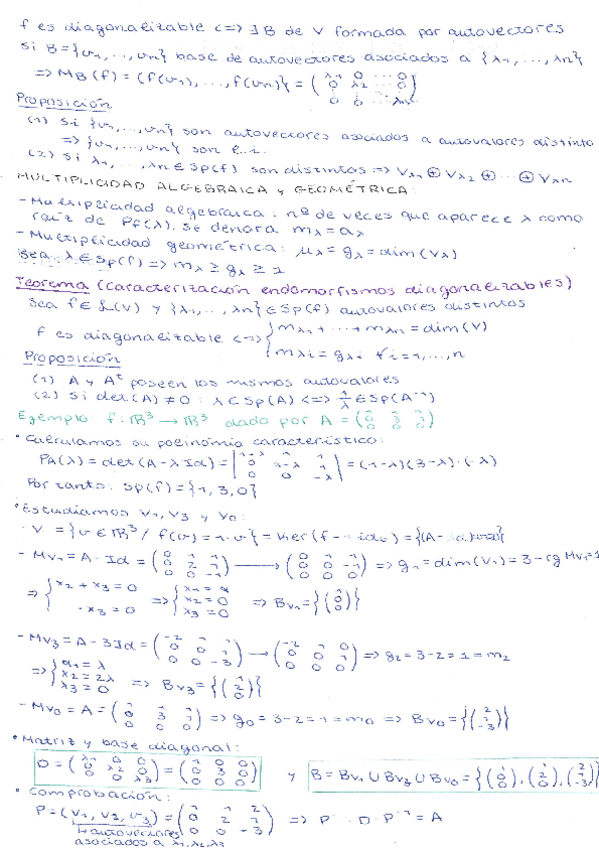 f es diagonalizable <=> ∃ B de V formada por autovectores
si B = {v1, ..., vn} base de autovectores asociados a {λ1, ..., λn}
=> MB(f) = (f(v1), ..., f(vn)) = (λ1 0 ... 0 / 0 λ2 ... 0 / 0 0 ... λn)
Proposición
(1) Si {v1, ..., vn} son autovectores asociados a autovalores distinto
=> {v1, ..., vn} son l.i.
(2) Si λ1, ..., λn ∈ Sp(f) son distintos => Vλ1 ⊕ Vλ2 ⊕ ... ⊕ Vλn
MULTIPLICIDAD ALGEBRAICA Y GEOMÉTRICA:
- Multiplicidad algebraica: nº de veces que aparece λ como
raíz de Pf(λ). Se denota mλ = aλ
- Multiplicidad geométrica: μλ = gλ = dim(Vλ)
Sea λ ∈ Sp(f) => mλ ≥ gλ ≥ 1
Teorema (caracterización endomorfismos diagonalizables)
Sea f ∈ L(V) y {λ1, ..., λn} ∈ Sp(f) autovalores distintos
f es diagonalizable <=> { mλ1 + ... + mλn = dim(V)
mλi = gλi ∀i = 1, ..., n
Proposición
(1) A y Aᵗ poseen los mismos autovalores
(2) Si det(A) ≠ 0: λ ∈ Sp(A) <=> 1/λ ∈ Sp(A⁻¹)
Ejemplo: f: ℝ³ → ℝ³ dado por A = (1 1 1 / 0 3 1 / 0 0 0)
• Calculamos su polinomio característico:
PA(λ) = det(A - λ Id) = |1-λ 1 1 / 0 3-λ 1 / 0 0 -λ| = (1-λ)(3-λ)·(-λ)
Por tanto: Sp(f) = {1, 3, 0}
• Estudiamos V1, V3 y V0:
· V = {v ∈ ℝ³ / f(v) = 1·v} = Ker(f - 1 id) =
- MV1 = A - Id = (0 1 1 / 0 2 1 / 0 0 -1) → (0 1 1 / 0 0 -1 / 0 0 0) => g1 = dim(V1) = 3 - rg MV1 = 1
=> { x2 + x3 = 0 / -x3 = 0 => { x1 = α / x2 = 0 / x3 = 0 => BV1 = {(1 0 0)}
- MV3 = A - 3Id = (-2 1 1 / 0 0 1 / 0 0 -3) → (-2 1 0 / 0 0 1 / 0 0 0) => g2 = 3 - 2 = 1 = m2
=> { x1 = λ / x2 = 2λ / x3 = 0 => BV3 = {(1 2 0)}
- MV0 = A = (1 1 1 / 0 3 1 / 0 0 0) => g0 = 3 - 2 = 1 = m0 => BV0 = {(2 1 -3)}
• Matriz y base diagonal:
D = (λ1 0 0 / 0 λ2 0 / 0 0 λ3) = (1 0 0 / 0 3 0 / 0 0 0) y B = BV1 ∪ BV3 ∪ BV0 = {(1 0 0), (1 2 0), (2 1 -3)}
• Comprobación:
P = (v1, v2, v3) = (1 1 2 / 0 2 1 / 0 0 -3) => P · D · P⁻¹ = A
autovectores
asociados a λ1, λ2, λ3